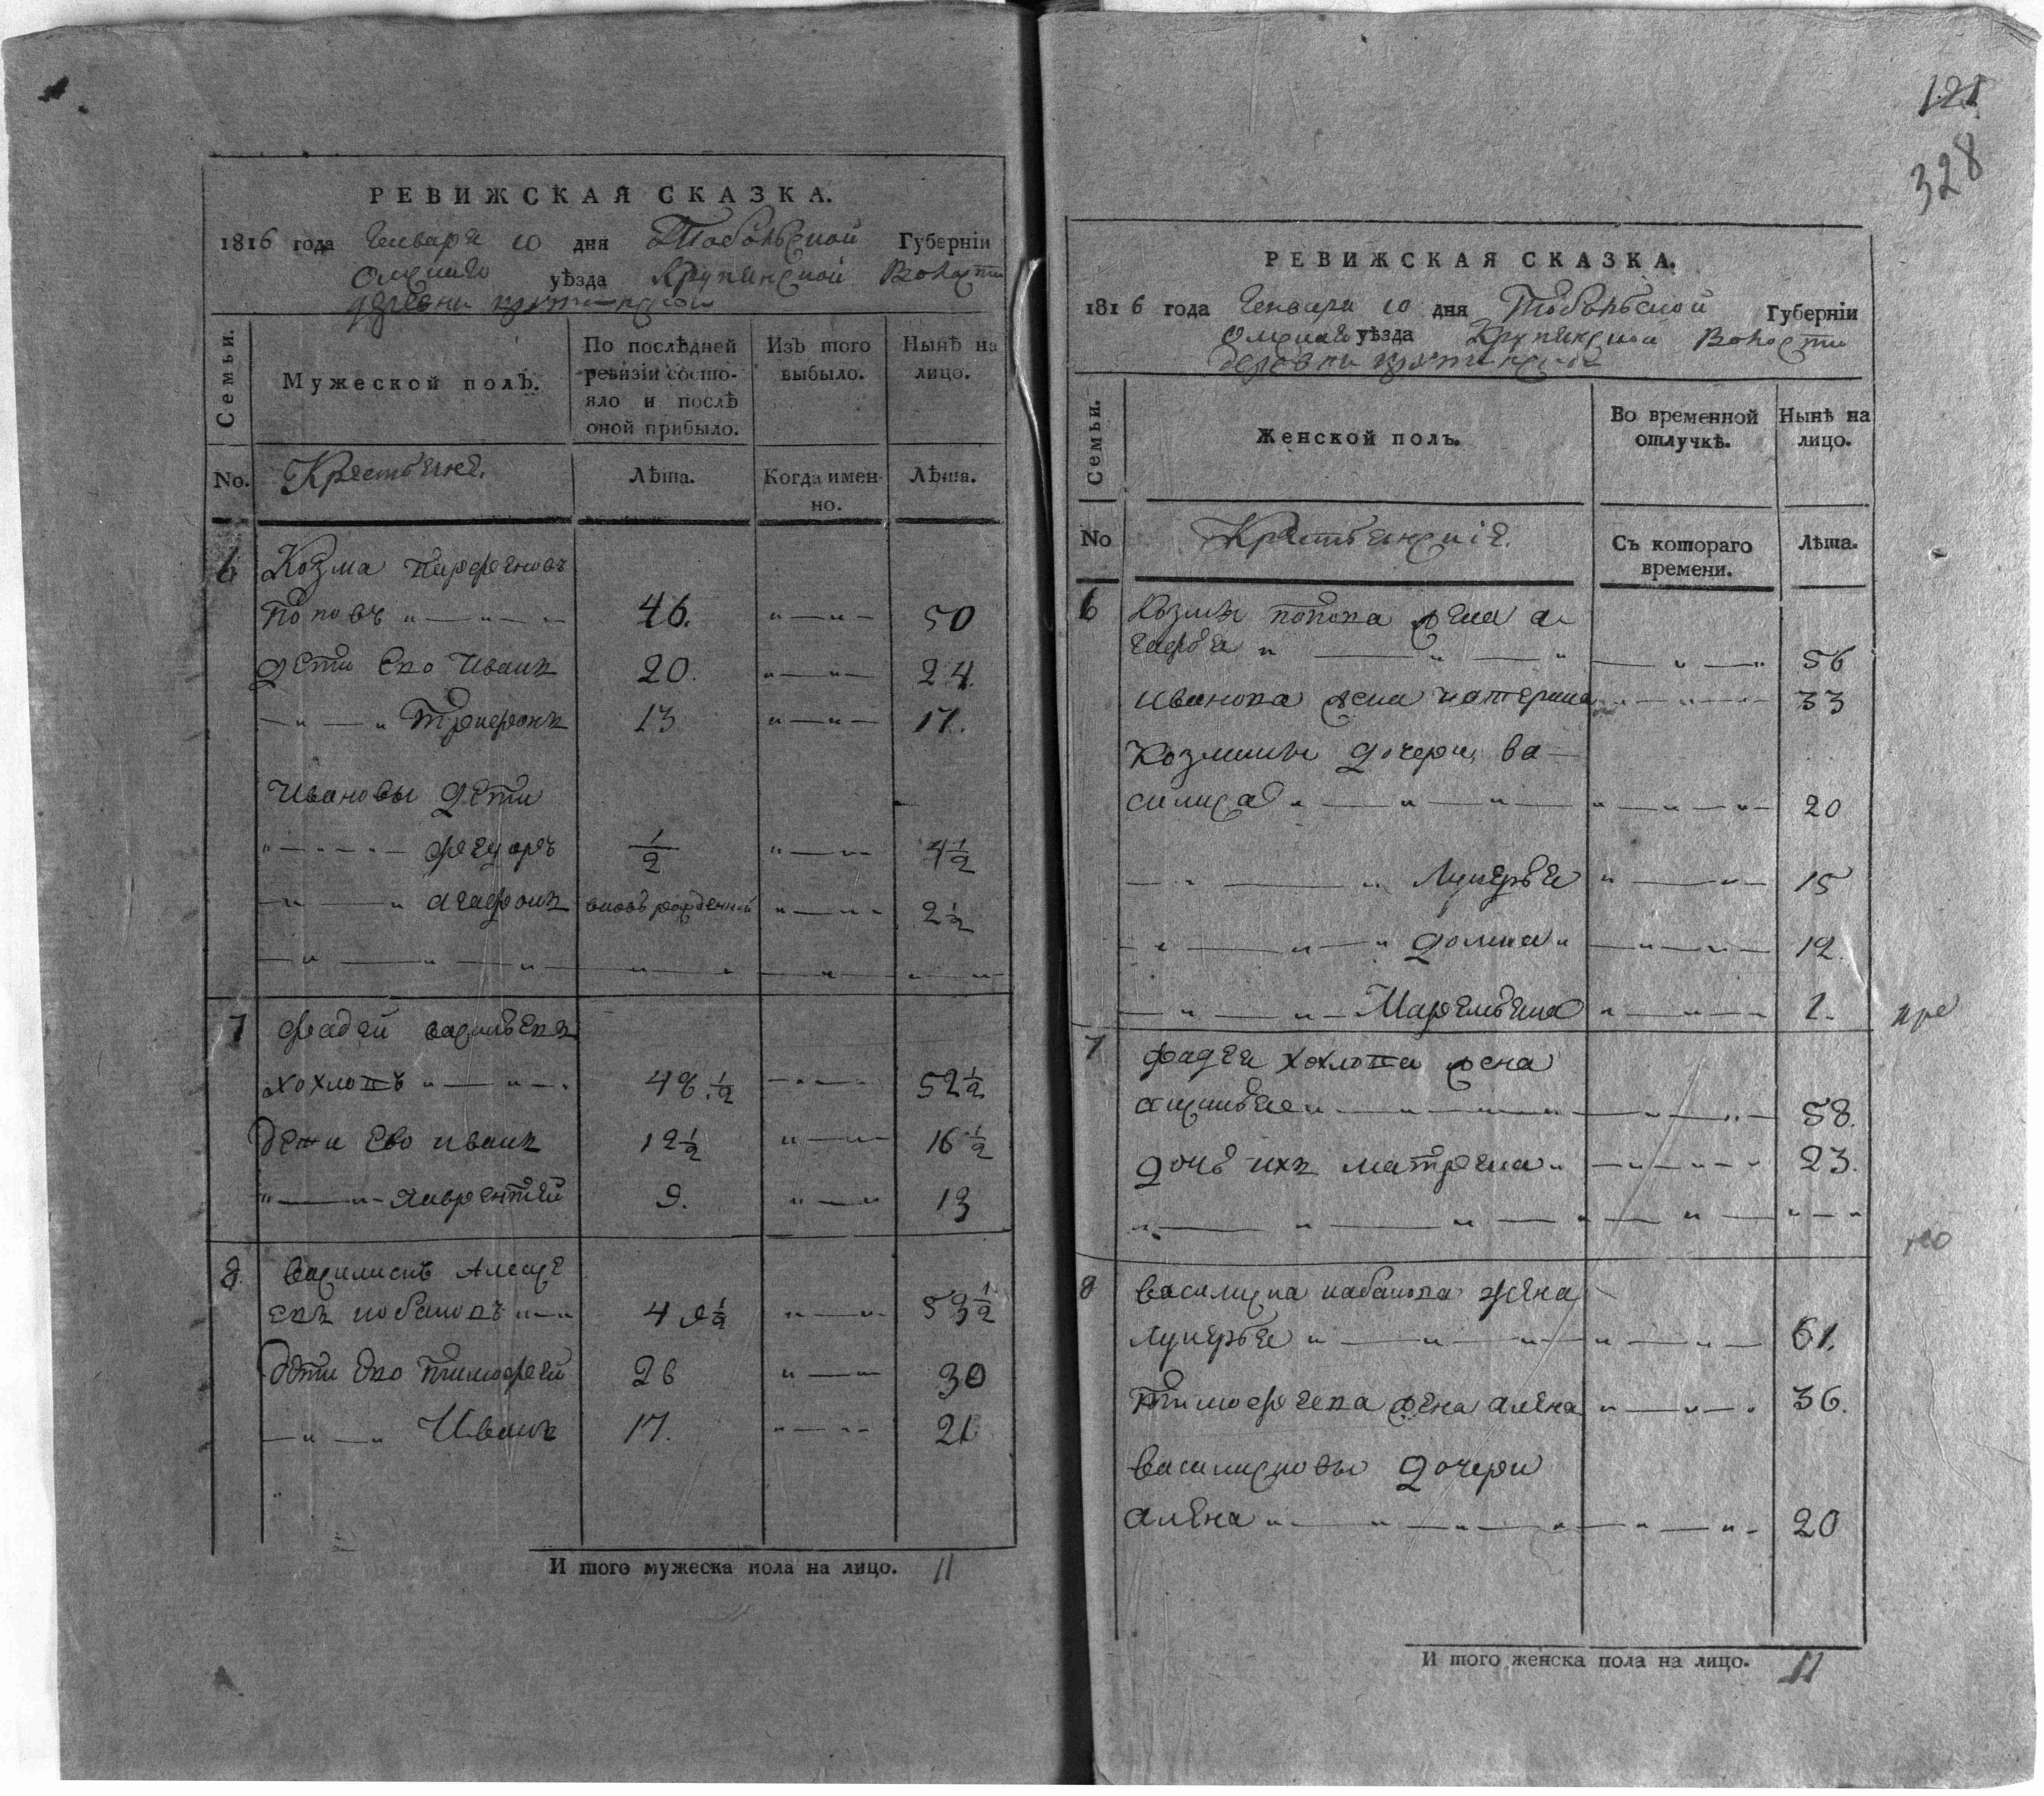 РЕВИЖСКАЯ СКАЗКА.
1816 года Генваря 10 дня Тобольской Губерніи
Омскаго уѣзда Крупинской Волости
деревни Крутинской
Семьи.
Мужеской полъ.
По послѣдней ревизіи состояло и послѣ оной прибыло.
Изъ того выбыло.
Нынѣ на лицо.
No. Крестьяне. Лѣта. Когда именно. Лѣта.
6 Козма Парфеновъ
Поповъ 46. 50
дети ево Иванъ 20. 24.
Трифонъ 13 17.
Ивановы дети
Федоръ 1/2 4 1/2
Агафонъ вновь рожденной 2 1/2
7 Фадей Васильевъ
Хохловъ 48 1/2 52 1/2
дети ево Иванъ 12 1/2 16 1/2
Лаврентей 9. 13
8. Василискъ Алексе
евъ Кабановъ 49 1/2 53 1/2
дети ево Тимофей 26 30
Иванъ 17. 21
И того мужеска пола на лицо. 11
121
328
РЕВИЖСКАЯ СКАЗКА.
1816 года Генваря 10 дня Тобольской Губерніи
Омскаго уѣзда Крупинской Волости
деревни Крутинской
Семьи.
Женской полъ.
Во временной отлучкѣ.
Нынѣ на лицо.
No Крестьянскіе. Съ котораго времени. Лѣта.
6 Козмы Попова жена а
гафья 56
Иванова жена Катерина 33
Козмины дочери, Ва
силиса 20
Лукерья 15
Домна 12.
Маремьяна 1.
7 Фадея Хохлова жена
Акулина 58.
дочь ихъ Матрена 23.
8 Василиска Кабанова жена
Лукерья 61.
Тимофеева жена Алена 36.
Василисковы дочери
Алена 20
И того женска пола на лицо. 11